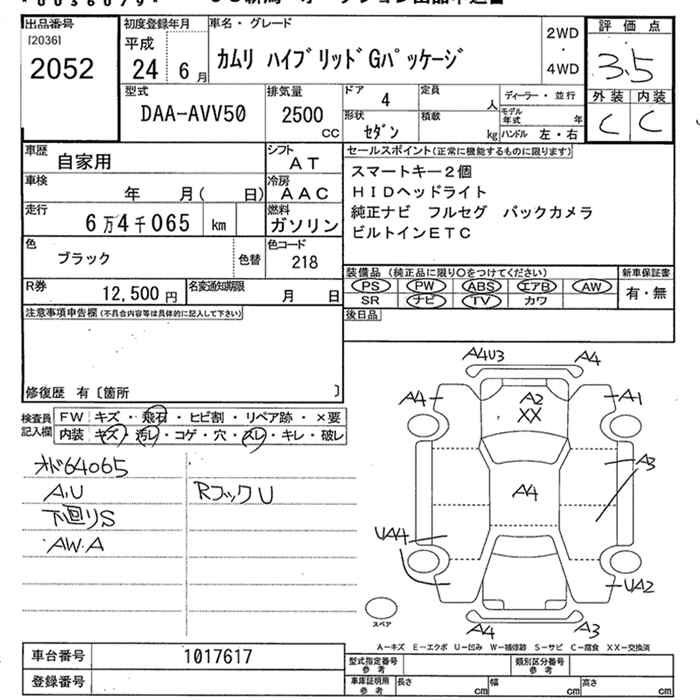 *0036079*
出品番号
[2036]
2052
初度登録年月
平成
24 6 月
車名・グレード
カムリ ハイブリッドGパッケージ
2WD
・
4WD
評価点
3.5
外装 内装
C C
型式
DAA-AVV50
排気量
2500
CC
ドア
4
定員
人
ディーラー・並行
形状
セダン
積載
kg
モデル年式
年
ハンドル 左・右
車歴
自家用
シフト
AT
車検
年 月( 日)
冷房
AAC
走行
6万4千065 km
燃料
ガソリン
色
ブラック
色替
色コード
218
R券
12,500 円
名変通知期限
月 日
セールスポイント(正常に機能するものに限ります)
スマートキー2個
HIDヘッドライト
純正ナビ フルセグ バックカメラ
ビルトインETC
装備品(純正品に限り○をつけてください)
PS PW ABS エアB AW
SR ナビ TV カワ
新車保証書
有・無
後日品
注意事項申告欄(不具合内容等は具体的に記入して下さい)
修復歴 有〔箇所 〕
検査員記入欄
FW キズ・飛石・ヒビ割・リペア跡・×要
内装 キズ・汚レ・コゲ・穴・スレ・キレ・破レ
オド64065
A,U
下廻りS
AW.A
RフックU
A4U3
A4
A4
A2
XX
A1
A3
A4
UA4
UA2
A4
A3
スペア
A-キズ E-エクボ U-凹み W-補修跡 S-サビ C-腐食 XX-交換済
車台番号
1017617
登録番号
型式指定番号参考
類別区分番号参考
車庫証明用参考
長さ cm
幅 cm
高さ cm